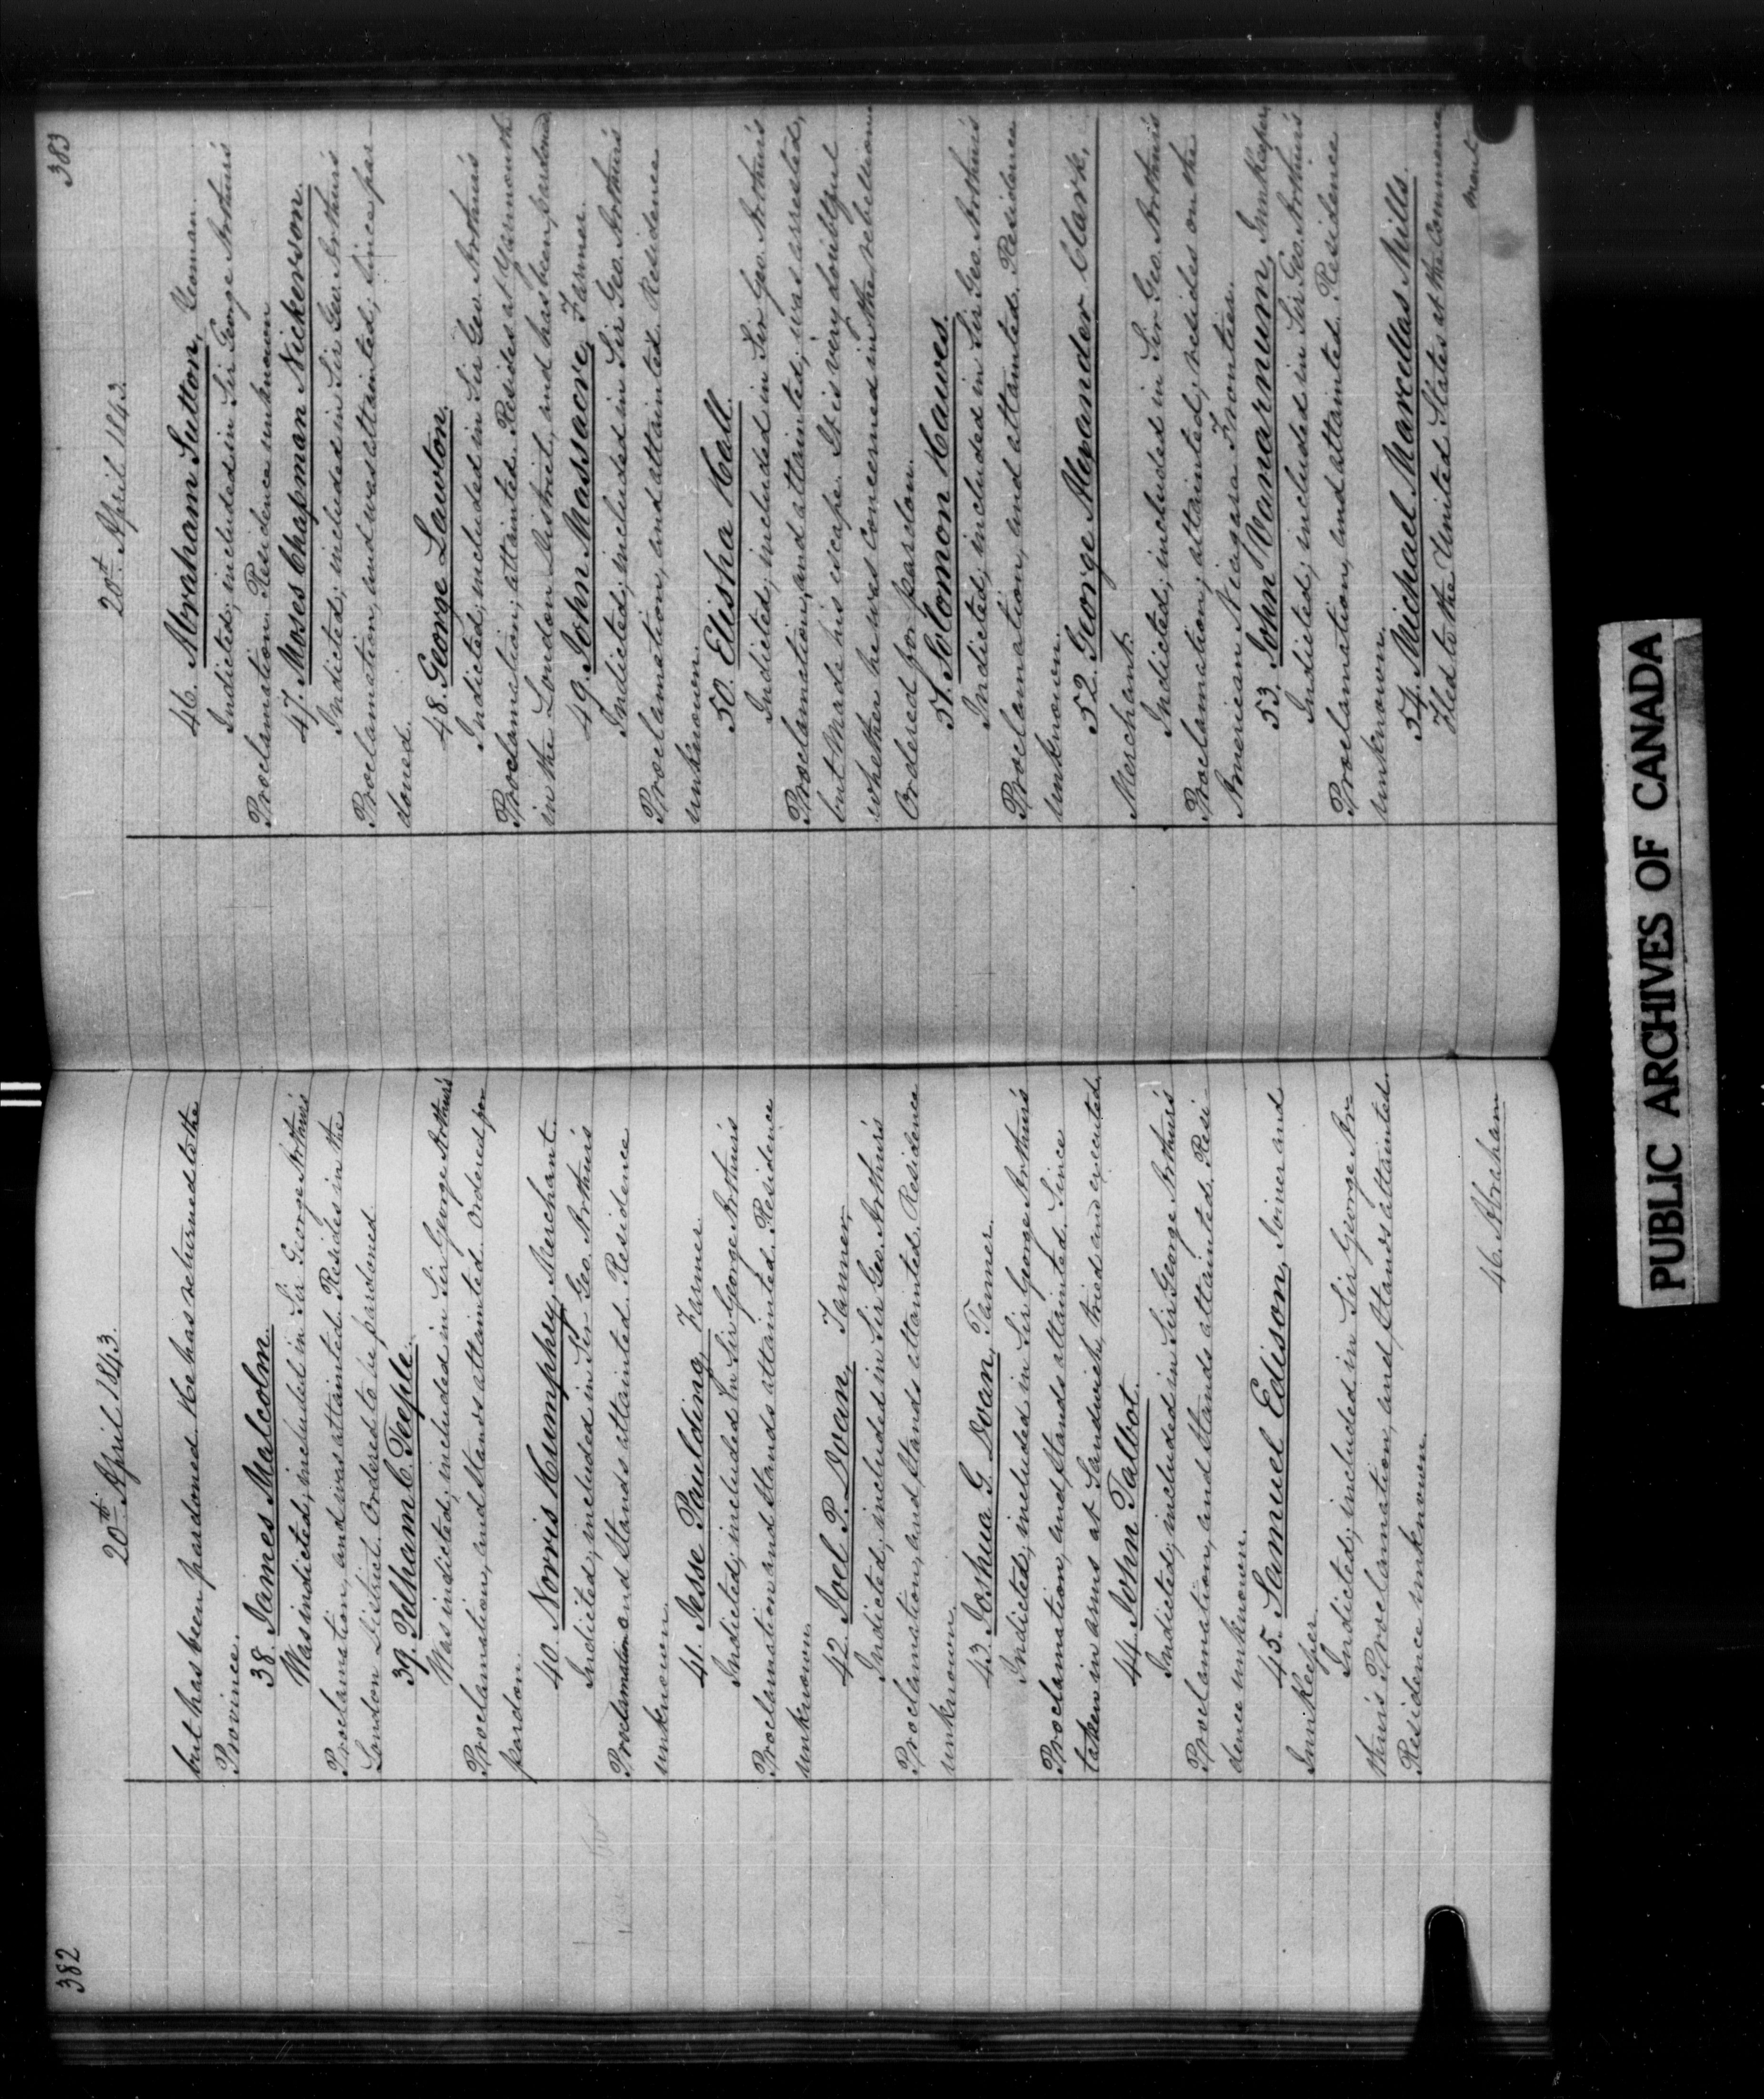 382
20th April 1843.
but has been pardoned. He has returned to the
Province.
38. James Malcolm.
Was indicted; included in Sir George Arthur's
Proclamation, and was attainted. Resides in the
London District. Ordered to be pardoned
39. Pelham C. Teeple.
Was indicted; included in Sir George Arthur's
Proclamation, and stands attainted. Ordered for
pardon.
40. Norris Humphrey, Merchant.
Indicted; included in Sir Geo. Arthur's
Proclamation and stands attainted. Residence
unknown.
41. Jesse Paulding, Farmer.
Indicted; included in Sir George Arthur's
Proclamation and stands attainted. Residence
unknown.
42. Joel P. Doan, Tanner.
Indicted; included in Sir Geo. Arthur's
Proclamation, and stands attainted. Residence
unknown.
43. Joshua G. Doan, Tanner.
Indicted; included in Sir George Arthur's
Proclamation, and stands attainted. Since
taken in arms at Sandwich, tried and executed.
44. John Talbot.
Indicted; included in Sir George Arthur's
Proclamation, and stands attainted. Resi-
dence unknown.
45. Samuel Edison, Joiner and
Innkeeper.
Indicted; included in Sir George Ar-
thur's Proclamation, and stands attainted.
Residence unknown.
46. Abraham
383
20th April 1843.
46. Abraham Sutton, Yeoman.
Indicted; included in Sir George Arthur's
Proclamation. Residence unknown
47. Moses Chapman Nickerson.
Indicted; included in Sir Geo. Arthur's
Proclamation, and was attainted; since par-
doned.
48. George Lawton.
Indicted; included in Sir Geo. Arthur's
Proclamation; attainted. Resides at Yarmouth
in the London District, and has been pardoned
49. John Massacre, Farmer.
Indicted; included in Sir Geo. Arthur's
Proclamation, and attainted. Residence
unknown.
50. Elisha Hall.
Indicted; included in Sir Geo. Arthur's
Proclamation, and attainted; was arrested,
but made his escape. It is very doubtful
whether he was concerned in the rebellion
Ordered for pardon.
51. Solomon Hawes.
Indicted; included in Sir Geo. Arthur's
Proclamation, and attainted. Residence
unknown.
52. George Alexander Clark,
Merchant.
Indicted; included in Sir Geo. Arthur's
Proclamation; attainted; resides on the
American Niagara Frontier.
53. John Vanarnum, Innkeeper,
Indicted; included in Sir Geo. Arthur's
Proclamation, and attainted. Residence
unknown.
54. Michael Marcellas Mills.
Fled to the United States at the Commence
ment
PUBLIC ARCHIVES OF CANADA